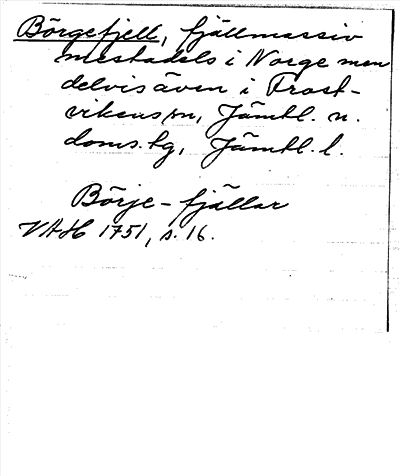 Börgefjell, fjällmassiv
mestadels i Norge men
delvis även i Frost-
vikens sn, Jämtl. n.
doms. tg, Jämtl. l.
Börje-fjällar
VAH 1751, s. 16.